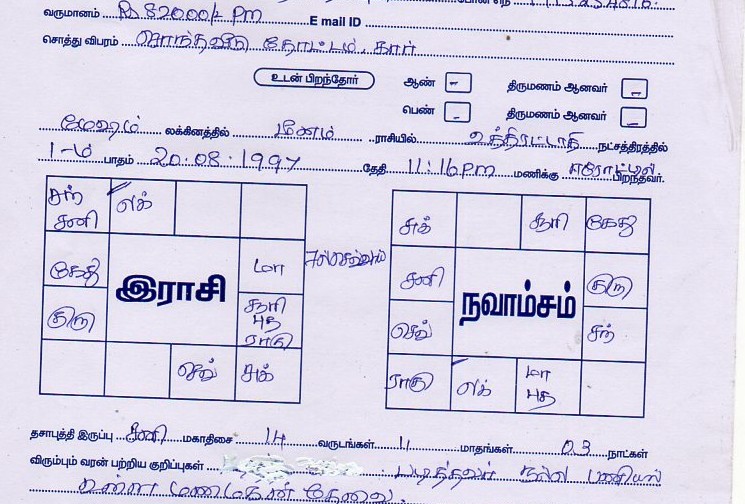 வருமானம் Rs 82000/- PM E mail ID
சொத்து விபரம் சொந்தவீடு தோட்டம், கார்
உடன் பிறந்தோர் ஆண் - திருமணம் ஆனவர் -
பெண் - திருமணம் ஆனவர் -
மேஷம் லக்கினத்தில் மீனம் ராசியில் உத்திரட்டாதி நட்சத்திரத்தில்
1-ம் பாதம் 20.08.1997 தேதி 11:16 PM மணிக்கு ஈரோட்டில் பிறந்தவர்.
சந் சனி லக்
கேது மா
குரு சூரி புத ராகு
செவ் சுக்
இராசி
சுக் சூரி கேது
சனி குரு
செவ் சந்
ராகு லக் மா புத
நவாம்சம்
தசாபுத்தி இருப்பு சனி மகாதிசை 14 வருடங்கள் 11 மாதங்கள் 03 நாட்கள்
விரும்பும் வரன் பற்றிய குறிப்புகள் படித்தவர் நல்ல பணியில்
உள்ள மணமகன் தேவை.